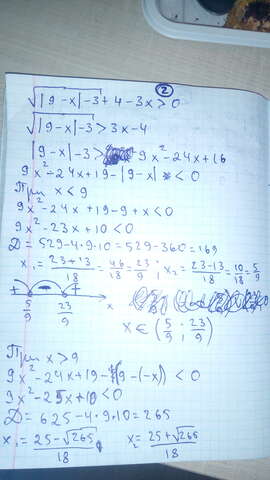 2
√|9-x|-3 + 4-3x>0
√|9-x|-3 > 3x-4
|9-x|-3> 9x²-24x+16
9x²-24x+19-|9-x| <0
При x<9
9x²-24x+19-9+x<0
9x²-23x+10<0
D=529-4·9·10=529-360=169
x₁=(23+13)/18=46/18=23/9; x₂=(23-13)/18=10/18=5/9
+ - +
5/9 23/9 x
x∈(5/9; 23/9)
При x>9
9x²-24x+19-(9-(-x))<0
9x²-25x+10<0
D=625-4·9·10=265
x₁=(25-√265)/18 x₂=(25+√265)/18